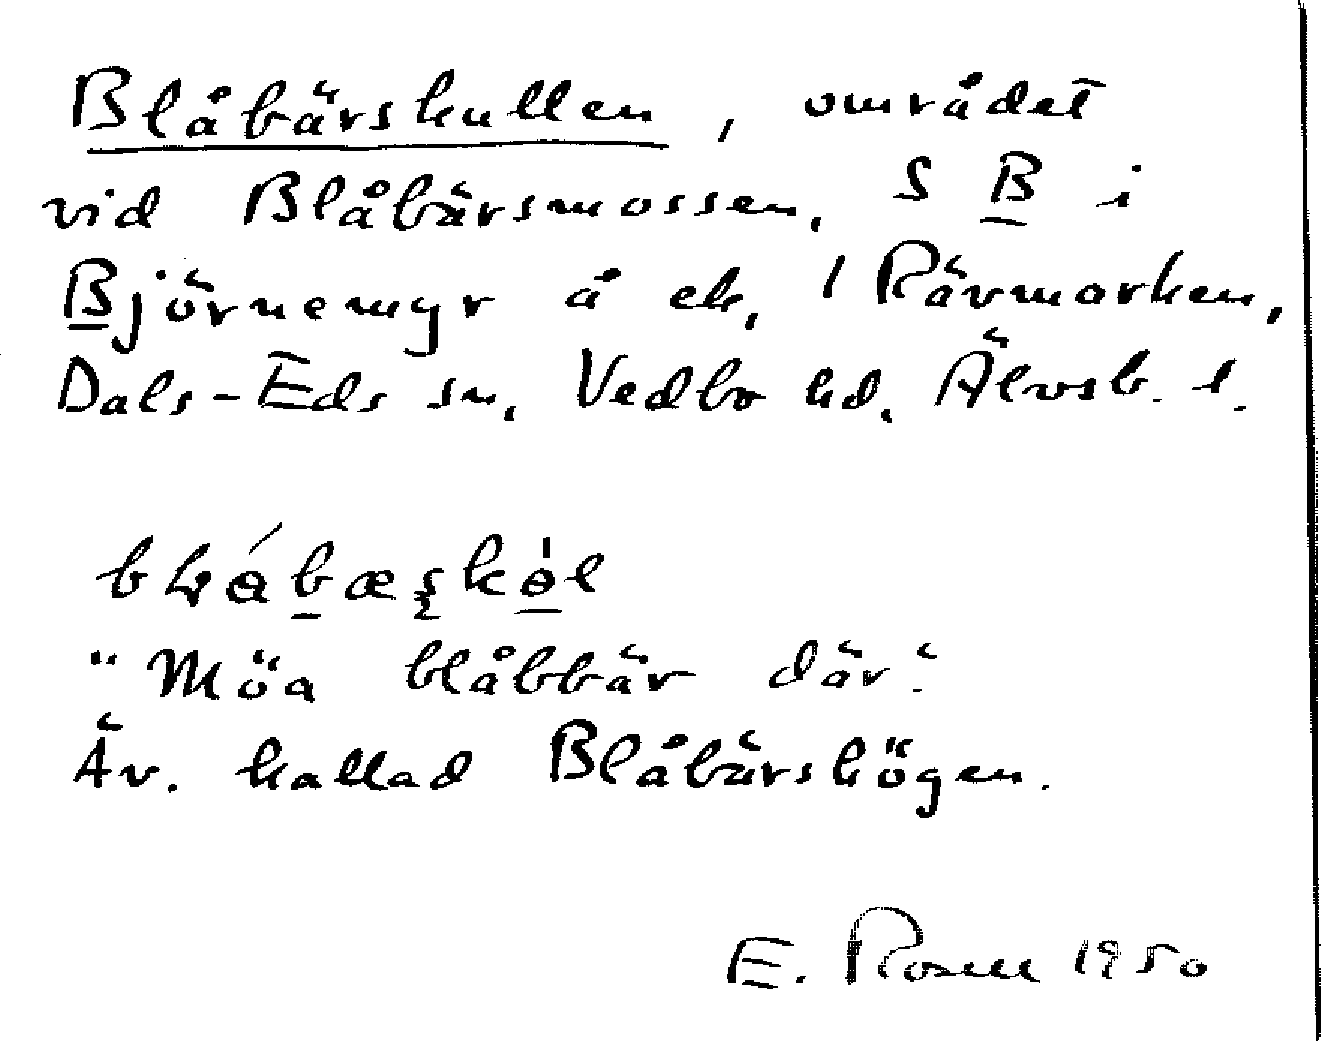 Blåbärskullen, området
vid Blåbärsmossen, S B i
Björnemyr å ek, 1 Rävmarken,
Dals-Eds sn, Vedbo hd, Älvsb. l.
"Möa blåbbär där."
Äv. kallad Blåbärshögen.
E. Rosell 1950